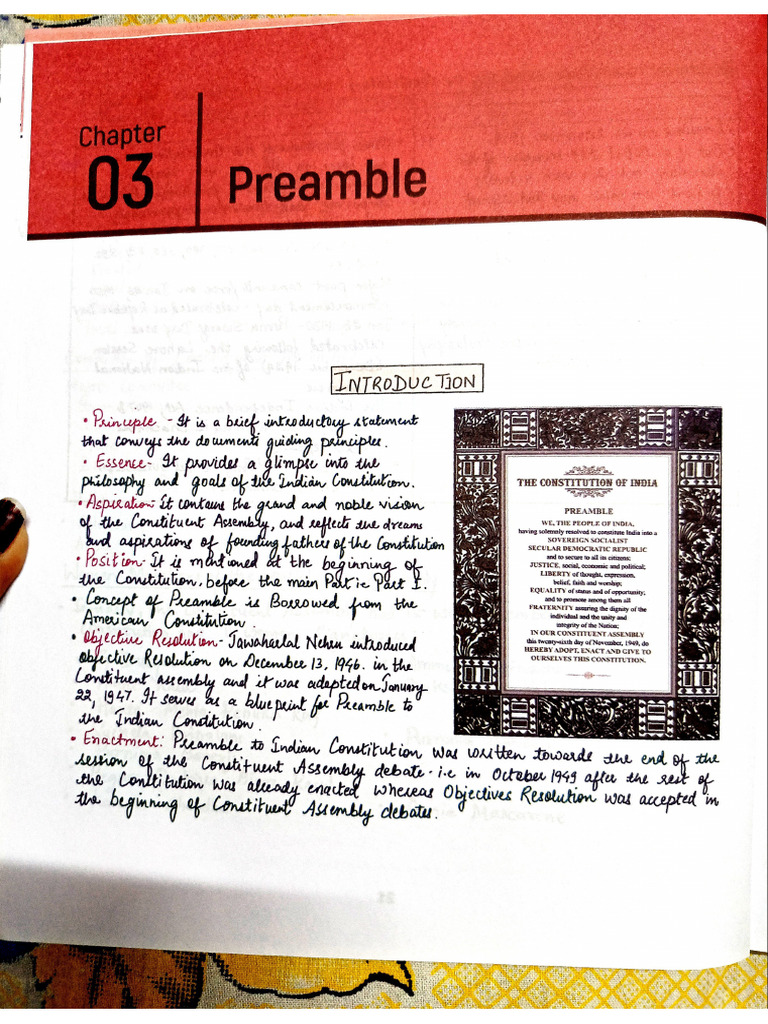 Chapter
03
Preamble
INTRODUCTION
• Principle - It is a brief introductory statement
that conveys the documents guiding principles.
• Essence - It provides a glimpse into the
philosophy and goals of the Indian Constitution.
• Aspiration: It contains the grand and noble vision
of the Constituent Assembly, and reflects the dreams
and aspirations of founding fathers of the Constitution
• Position: It is mentioned at the beginning of
the Constitution, before the main Part ie Part I.
• Concept of Preamble is Borrowed from the
American Constitution.
• Objective Resolution - Jawaharlal Nehru introduced
objective Resolution on December 13, 1946. in the
Constituent assembly and it was adapted on January
22, 1947. It serves as a blueprint for Preamble to
the Indian Constitution.
• Enactment: Preamble to Indian Constitution was written towards the end of the
session of the Constituent Assembly debate - i.e in October 1949 after the rest of
the Constitution was already enacted whereas Objectives Resolution was accepted in
the beginning of Constituent Assembly debates.
THE CONSTITUTION OF INDIA
PREAMBLE
WE, THE PEOPLE OF INDIA,
having solemnly resolved to constitute India into a
SOVEREIGN SOCIALIST
SECULAR DEMOCRATIC REPUBLIC
and to secure to all its citizens;
JUSTICE, social, economic and political;
LIBERTY of thought, expression,
belief, faith and worship;
EQUALITY of status and of opportunity;
and to promote among them all
FRATERNITY assuring the dignity of the
individual and the unity and
integrity of the Nation;
IN OUR CONSTITUENT ASSEMBLY
this twenty-sixth day of November, 1949, do
HEREBY ADOPT, ENACT AND GIVE TO
OURSELVES THIS CONSTITUTION.